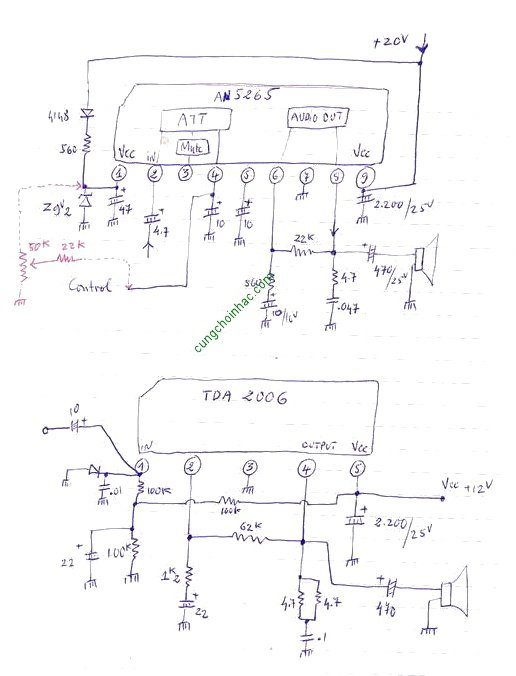 +20V
AN5265
4148
ATT
AUDIO OUT
560
Mute
Vcc
IN
Vcc
1
2
3
4
5
6
7
8
9
Z9V2
47
4.7
10
10
2.200/25V
50K
22K
22K
470/25V
Control
560
4.7
10/16V
.047
cungchoinhac.com
TDA 2006
10
IN
OUTPUT
Vcc
1
2
3
4
5
.01
100K
100K
Vcc +12V
62K
2.200/25V
22
100K
1K2
4.7
4.7
470
22
.1